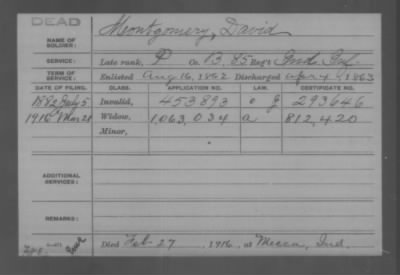 DEAD
NAME OF SOLDIER: Montgomery, David
SERVICE: Late rank, P Co B, 85 Reg't Ind. Inf.
TERM OF SERVICE: Enlisted Aug 16, 1862 Discharged Apr 4, 1863
DATE OF FILING. CLASS. APPLICATION NO. LAW. CERTIFICATE NO.
1882 July 5 Invalid, 453893 g 293646
1916 Mar 28 Widow, 1,063,034 a 812,420
Minor,
ADDITIONAL SERVICES:
REMARKS:
Died Feb 27, 1916, at Mecca, Ind.